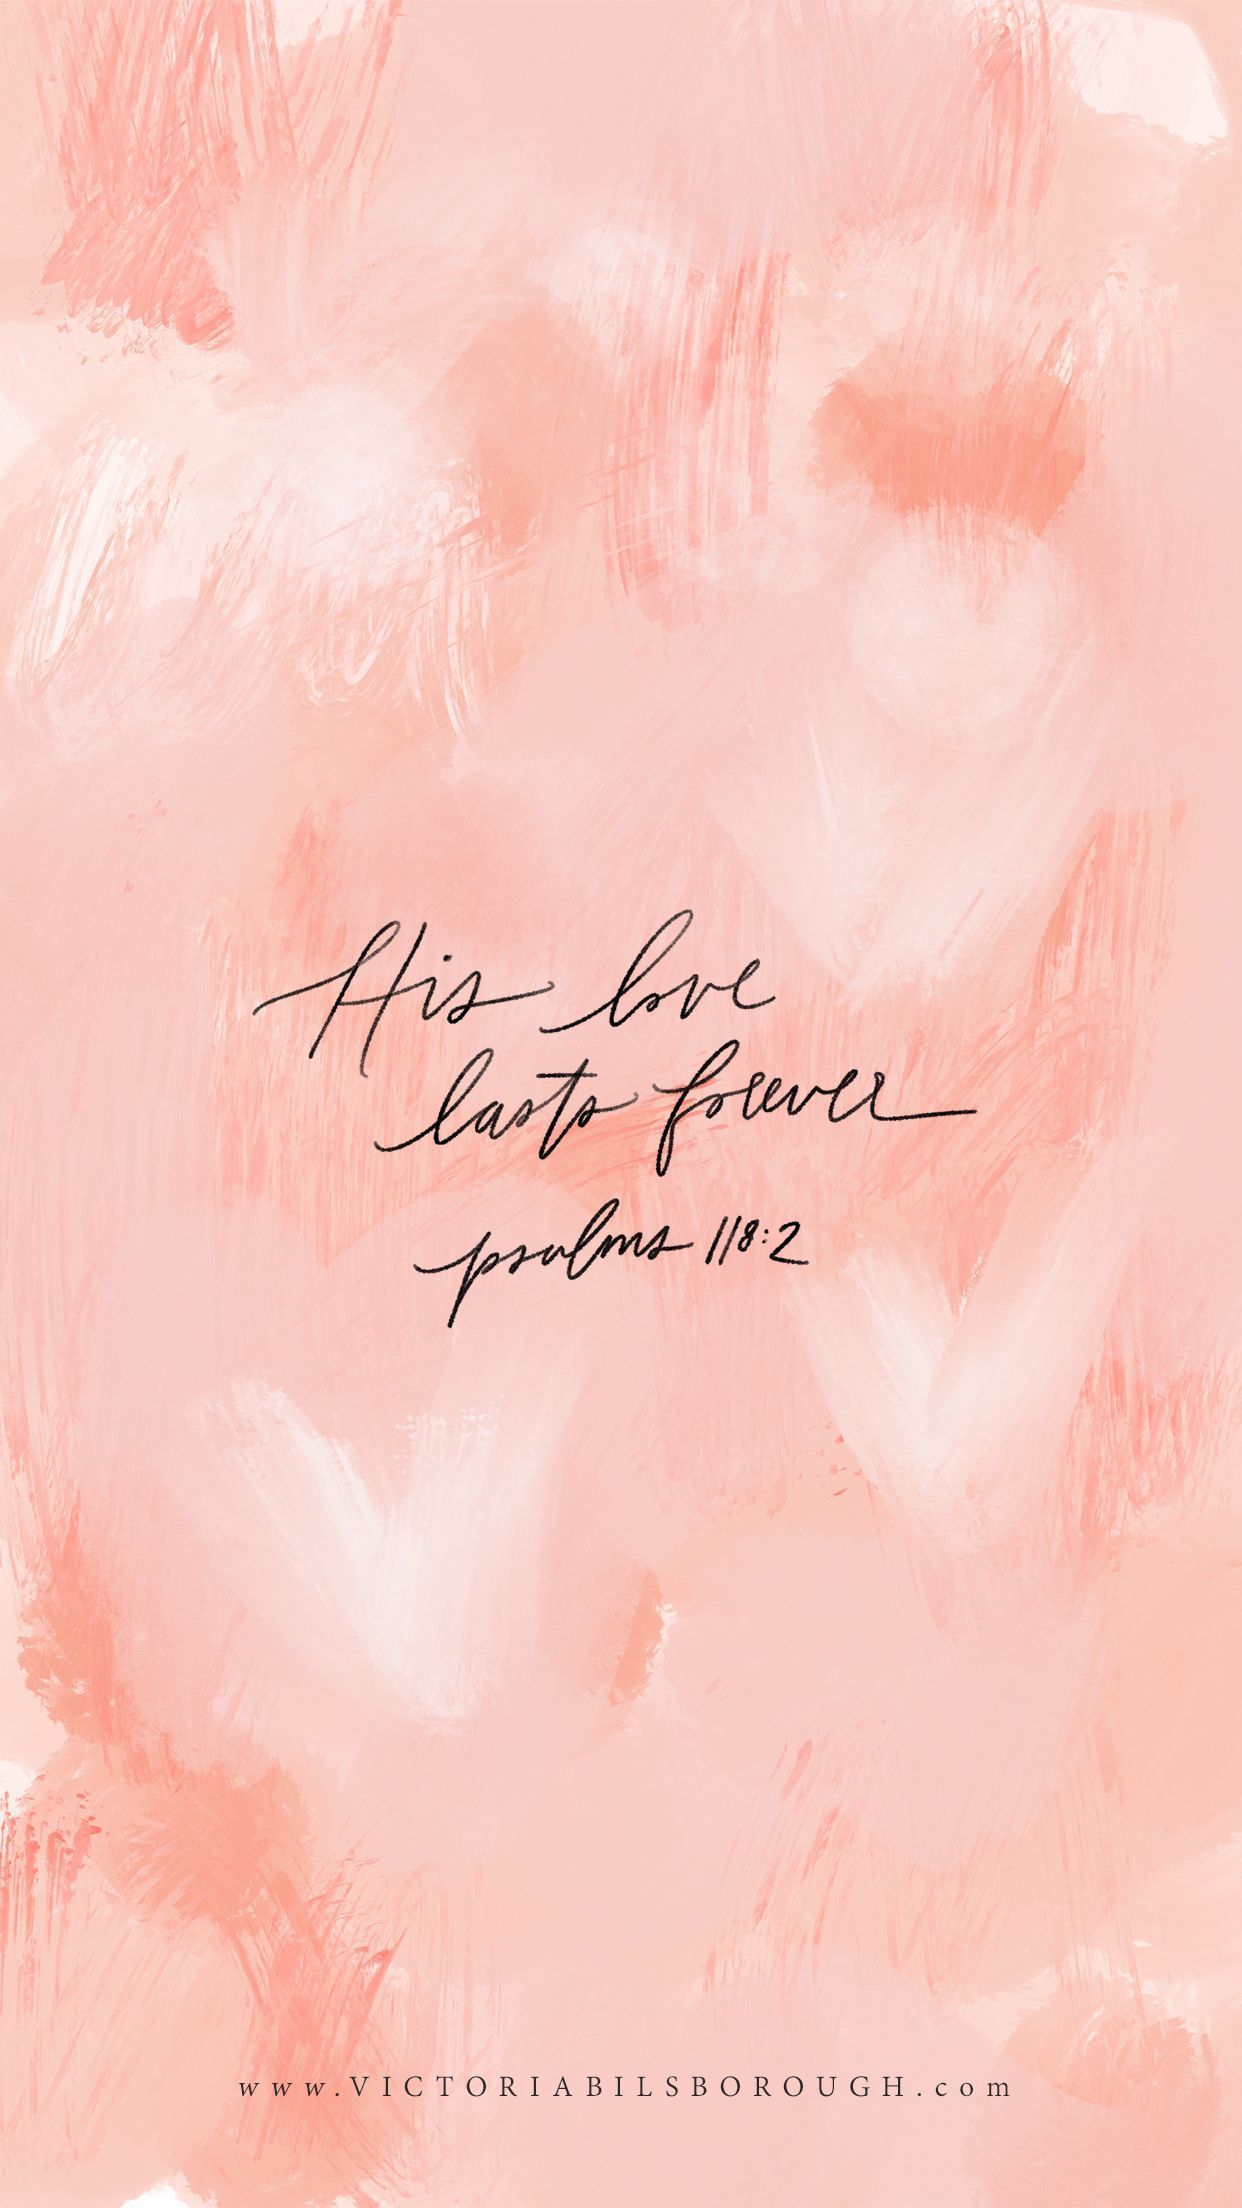 His love
lasts forever
psalms 118:2
www.VICTORIABILSBOROUGH.com